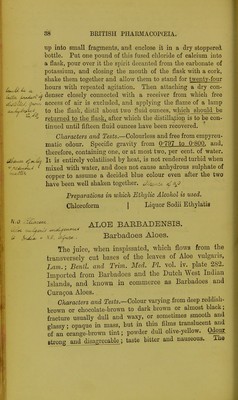 38 BRITISH PHARMACOPŒIA.
up into small fragments, and enclose it in a dry stoppered
bottle. Put one pound of this fused chloride of calcium into
a flask, pour over it the spirit decanted from the carbonate of
potassium, and closing the mouth of the flask with a cork,
shake them together and allow them to stand for twenty-four
hours with repeated agitation. Then attaching a dry con-
denser closely connected with a receiver from which free
access of air is excluded, and applying the flame of a lamp
to the flask, distil about two fluid ounces, which should be
returned to the flask, after which the distillation is to be con-
tinued until fifteen fluid ounces have been recovered.
Characters and Tests.—Colourless and free from empyreu-
matic odour. Specific gravity from 0·797 to 0·800, and,
therefore, containing one, or at most two, per cent. of water.
It is entirely volatilised by heat, is not rendered turbid when
mixed with water, and does not cause anhydrous sulphate of
copper to assume a decided blue colour even after the two
have been well shaken together.
Preparations in which Ethylic Alcohol is used.
Chloroform | Liquor Sodii Ethylatis
ALOE BARBADENSIS.
Barbadoes Aloes.
The juice, when inspissated, which flows from the
transversely cut bases of the leaves of Aloe vulgaris,
Lam.; Bentl. and Trim. Med. Pl. vol. iv. plate 282.
Imported from Barbadoes and the Dutch West Indian
Islands, and known in commerce as Barbadoes and
Curaçoa Aloes.
Characters and Tests.—Colour varying from deep reddish-
brown or chocolate-brown to dark brown or almost black;
fracture usually dull and waxy, or sometimes smooth and
glassy; opaque in mass, but in thin films translucent and
of an orange-brown tint; powder dull olive-yellow. Odour
strong and disagreeable; taste bitter and nauseous. The